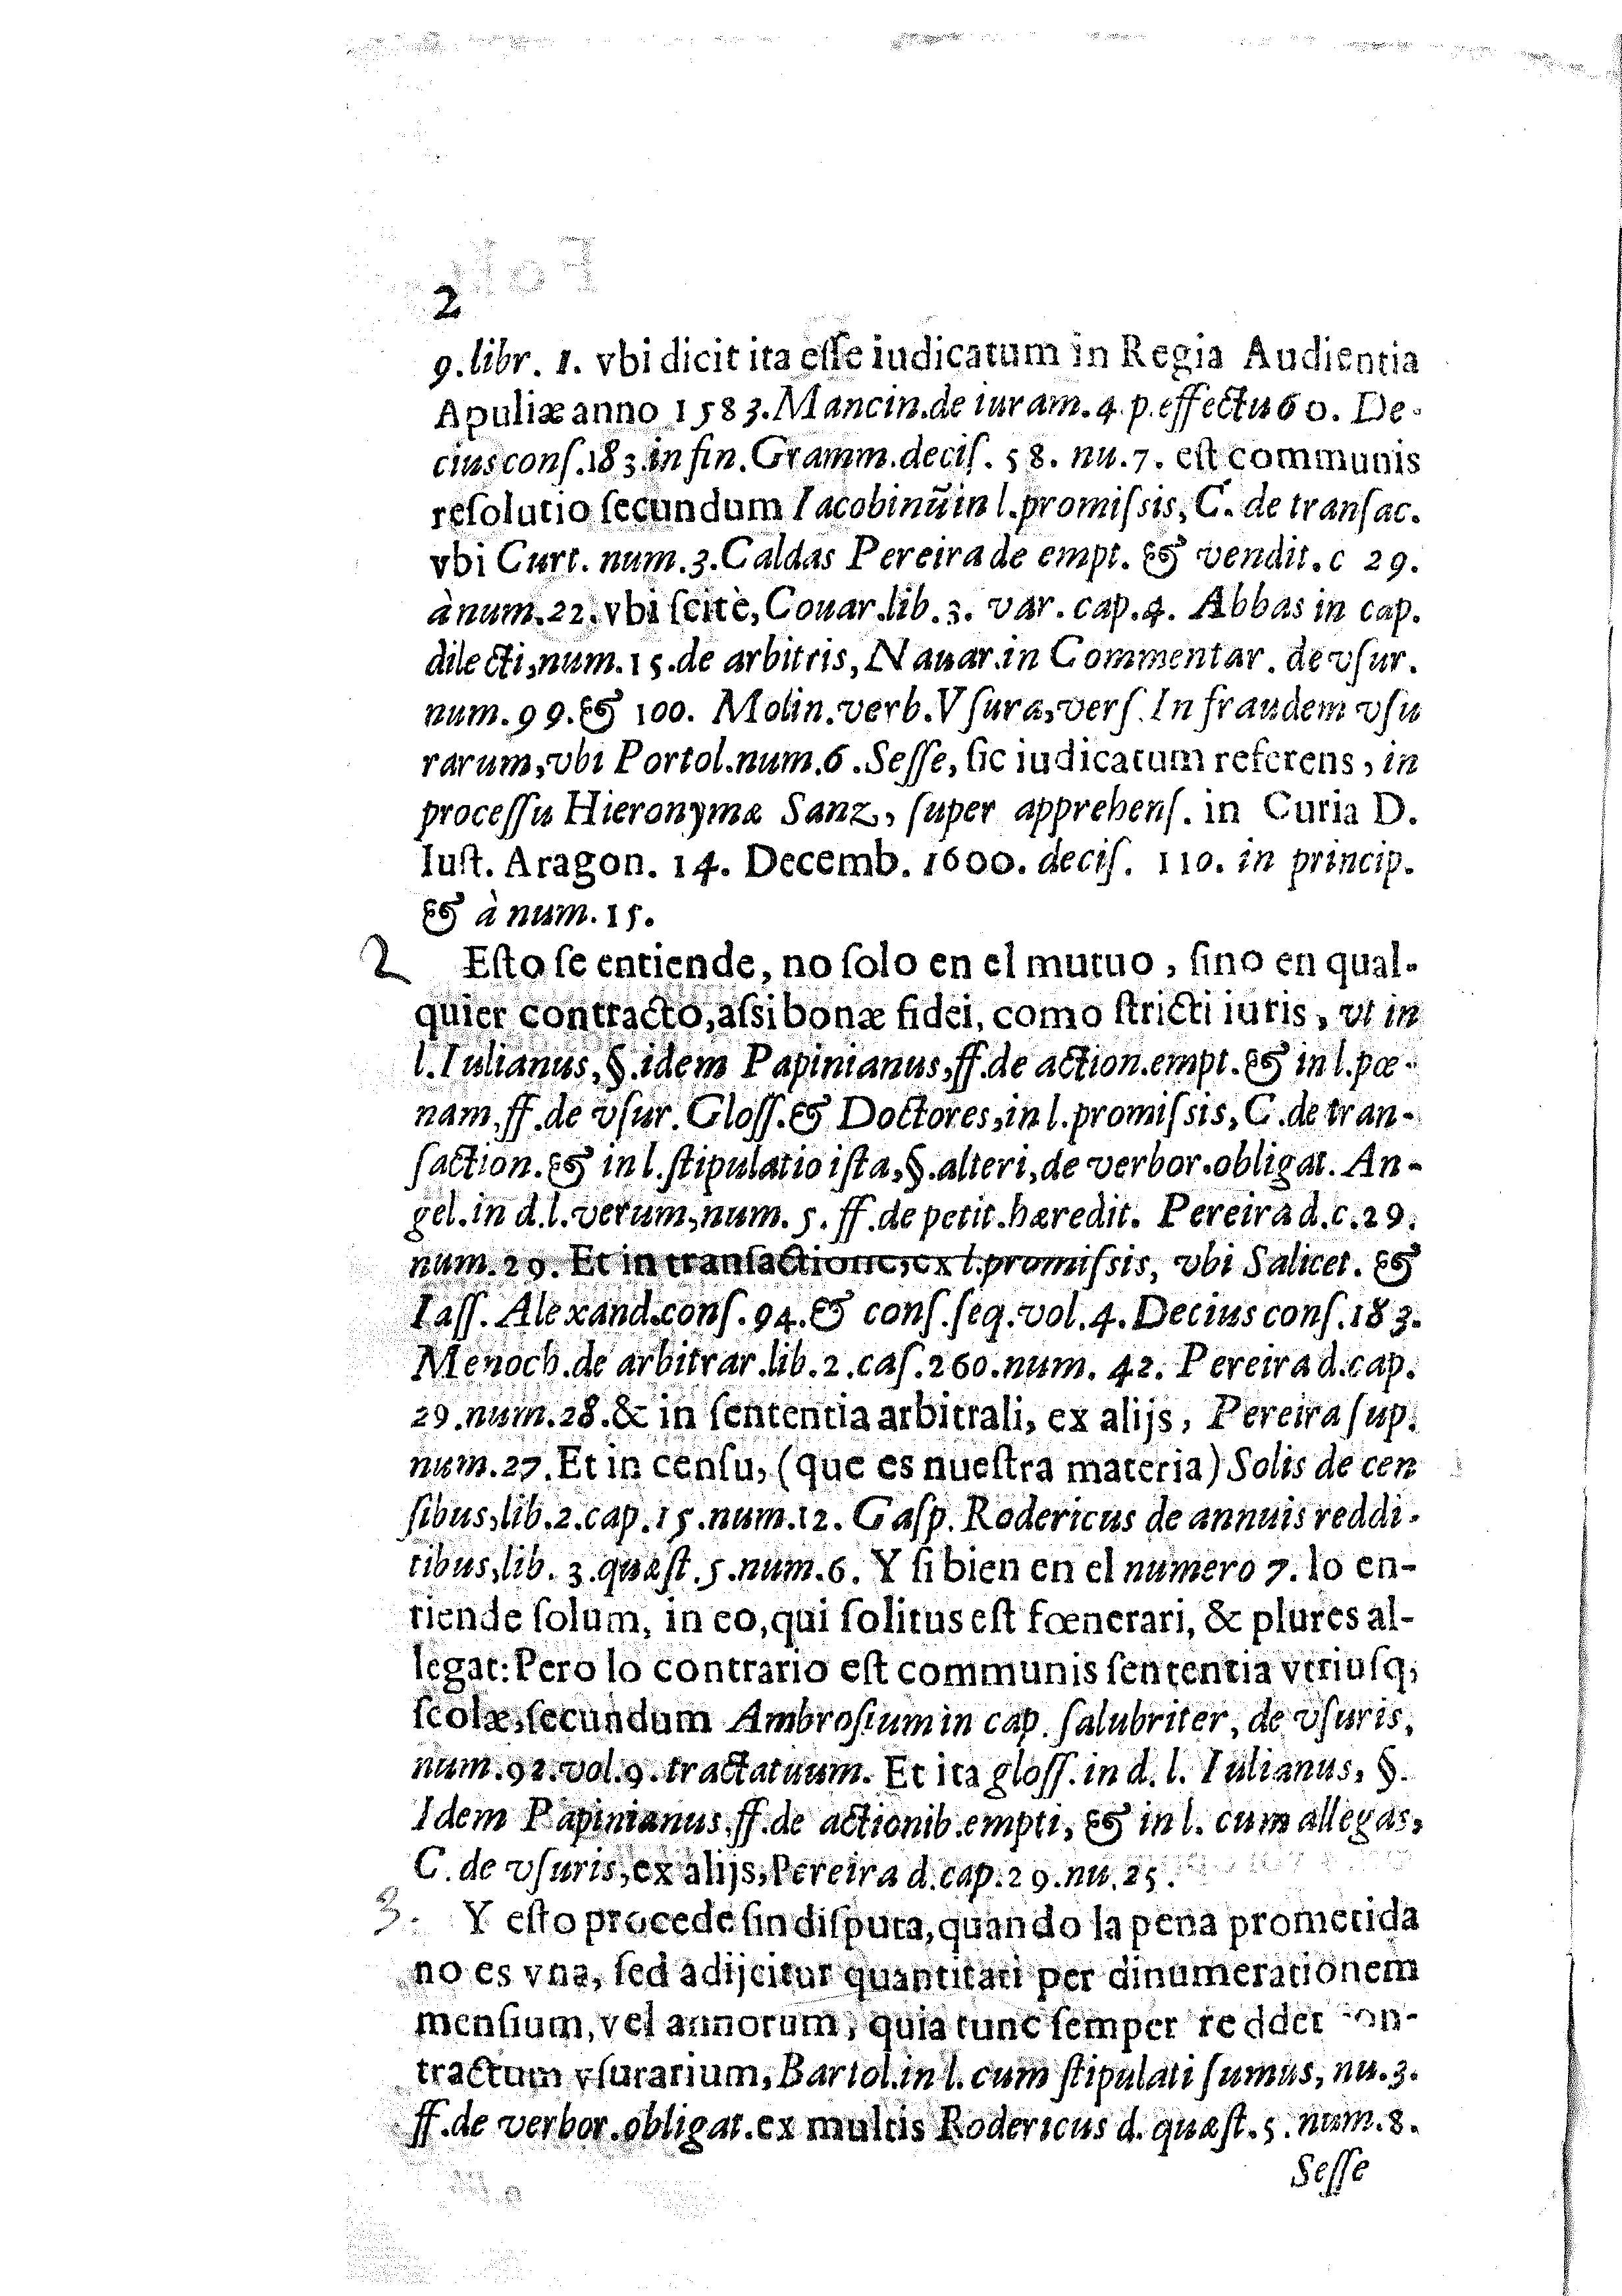 2
9. libr. 1. vbi dicit ita eſſe iudicatum in Regia Audientia
Apuliæ anno 1583. Mancin. de iuram. 4. p. effectu 60. De-
cius conſ. 183. in fin. Gramm. deciſ. 58. nu. 7. eſt communis
reſolutio ſecundum Iacobinũ in l. promiſsis, C. de tranſac.
vbi Curt. num. 3. Caldas Pereira de empt. & vendit. c 29.
à num. 22. vbi ſcitè, Couar. lib. 3. var. cap. 4. Abbas in cap.
dilecti, num. 15. de arbitris, Nauar. in Commentar. de vſur.
num. 99. & 100. Molin. verb. Vſura, verſ. In fraudem vſu
rarum, vbi Portol. num. 6. Seſſe, ſic iudicatum referens, in
proceſſu Hieronymæ Sanz, ſuper apprehenſ. in Curia D.
Iuſt. Aragon. 14. Decemb. 1600. deciſ. 110. in princip.
& à num. 15.
2 Eſto ſe entiende, no ſolo en el mutuo, ſino en qual-
quier contracto, aſsi bonæ fidei, como ſtricti iuris, vt in
l. Iulianus, §. idem Papinianus, ff. de action. empt. & in l. pœ-
nam, ff. de vſur. Gloſſ. & Doctores, in l. promiſsis, C. de tran-
ſaction. & in l. ſtipulatio iſta, §. alteri, de verbor. obligat. An-
gel. in d. l. verum, num. 5. ff. de petit. hæredit. Pereira d. c. 29.
num. 29. Et in tranſactione, ex l. promiſsis, vbi Salicet. &
Iaſſ. Alexand. conſ. 94. & conſ. ſeq. vol. 4. Decius conſ. 183.
Menoch. de arbitrar. lib. 2. caſ. 260. num. 42. Pereira d. cap.
29. num. 28. & in ſententia arbitrali, ex alijs, Pereira ſup.
num. 27. Et in cenſu, (que es nueſtra materia) Solis de cen
ſibus, lib. 2. cap. 15. num. 12. Gaſp. Rodericus de annuis reddi-
tibus, lib. 3. quæſt. 5. num. 6. Y ſi bien en el numero 7. lo en-
tiende ſolum, in eo, qui ſolitus eſt fœnerari, & plures al-
legat: Pero lo contrario eſt communis ſententia vtriuſq;
ſcolæ, ſecundum Ambroſium in cap. ſalubriter, de vſuris,
num. 92. vol. 9. tractatuum. Et ita gloſſ. in d. l. Iulianus, §.
Idem Papinianus, ff. de actionib. empti, & in l. cum allegas,
C. de vſuris, ex alijs, Pereira d. cap. 29. nu. 25.
3. Y eſto procede ſin diſputa, quando la pena prometida
no es vna, ſed adijcitur quantitati per dinumerationem
menſium, vel annorum, quia tunc ſemper reddet con-
tractum vſurarium, Bartol. in l. cum ſtipulati ſumus, nu. 3.
ff. de verbor. obligat. ex multis Rodericus d. quæſt. 5. num. 8.
Seſſe